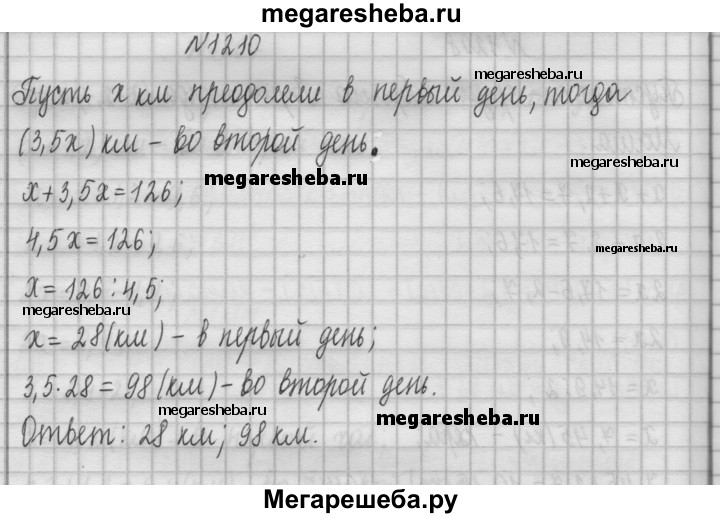 megaresheba.ru
N1210
Пусть x км преодолели в первый день, тогда
megaresheba.ru
(3,5x) км – во второй день.
megaresheba.ru
megaresheba.ru
x+3,5x=126;
4,5x=126;
megaresheba.ru
x=126:4,5;
megaresheba.ru
x=28(км) – в первый день;
3,5·28=98(км) – во второй день.
megaresheba.ru
megaresheba.ru
Ответ: 28 км; 98 км.
Мегарешеба.ру